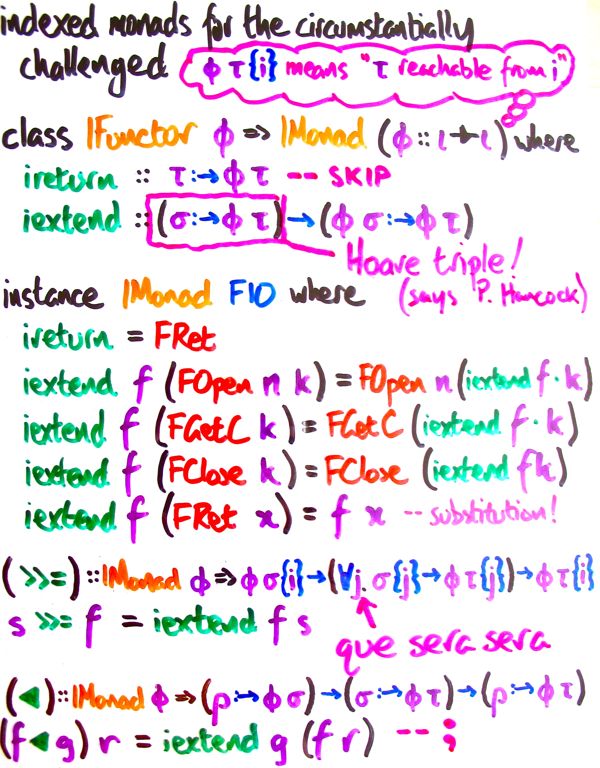 indexed monads for the circumstantially
challenged
φ τ{i} means "τ reachable from i"
class IFunctor φ => IMonad (φ :: ι ⇸ ι) where
ireturn :: τ :→ φ τ -- SKIP
iextend :: (σ :→ φ τ) → (φ σ :→ φ τ)
Hoare triple!
(says P. Hancock)
instance IMonad FIO where
ireturn = FRet
iextend f (FOpen n k) = FOpen n (iextend f · k)
iextend f (FGetC k) = FGetC (iextend f · k)
iextend f (FClose k) = FClose (iextend f k)
iextend f (FRet x) = f x -- substitution!
(>>=) :: IMonad φ => φ σ{i} → (∀j. σ{j} → φ τ{j}) → φ τ{i}
s >>= f = iextend f s
que sera sera
(◀) :: IMonad φ => (ρ :→ φ σ) → (σ :→ φ τ) → (ρ :→ φ τ)
(f ◀ g) r = iextend g (f r) -- ;